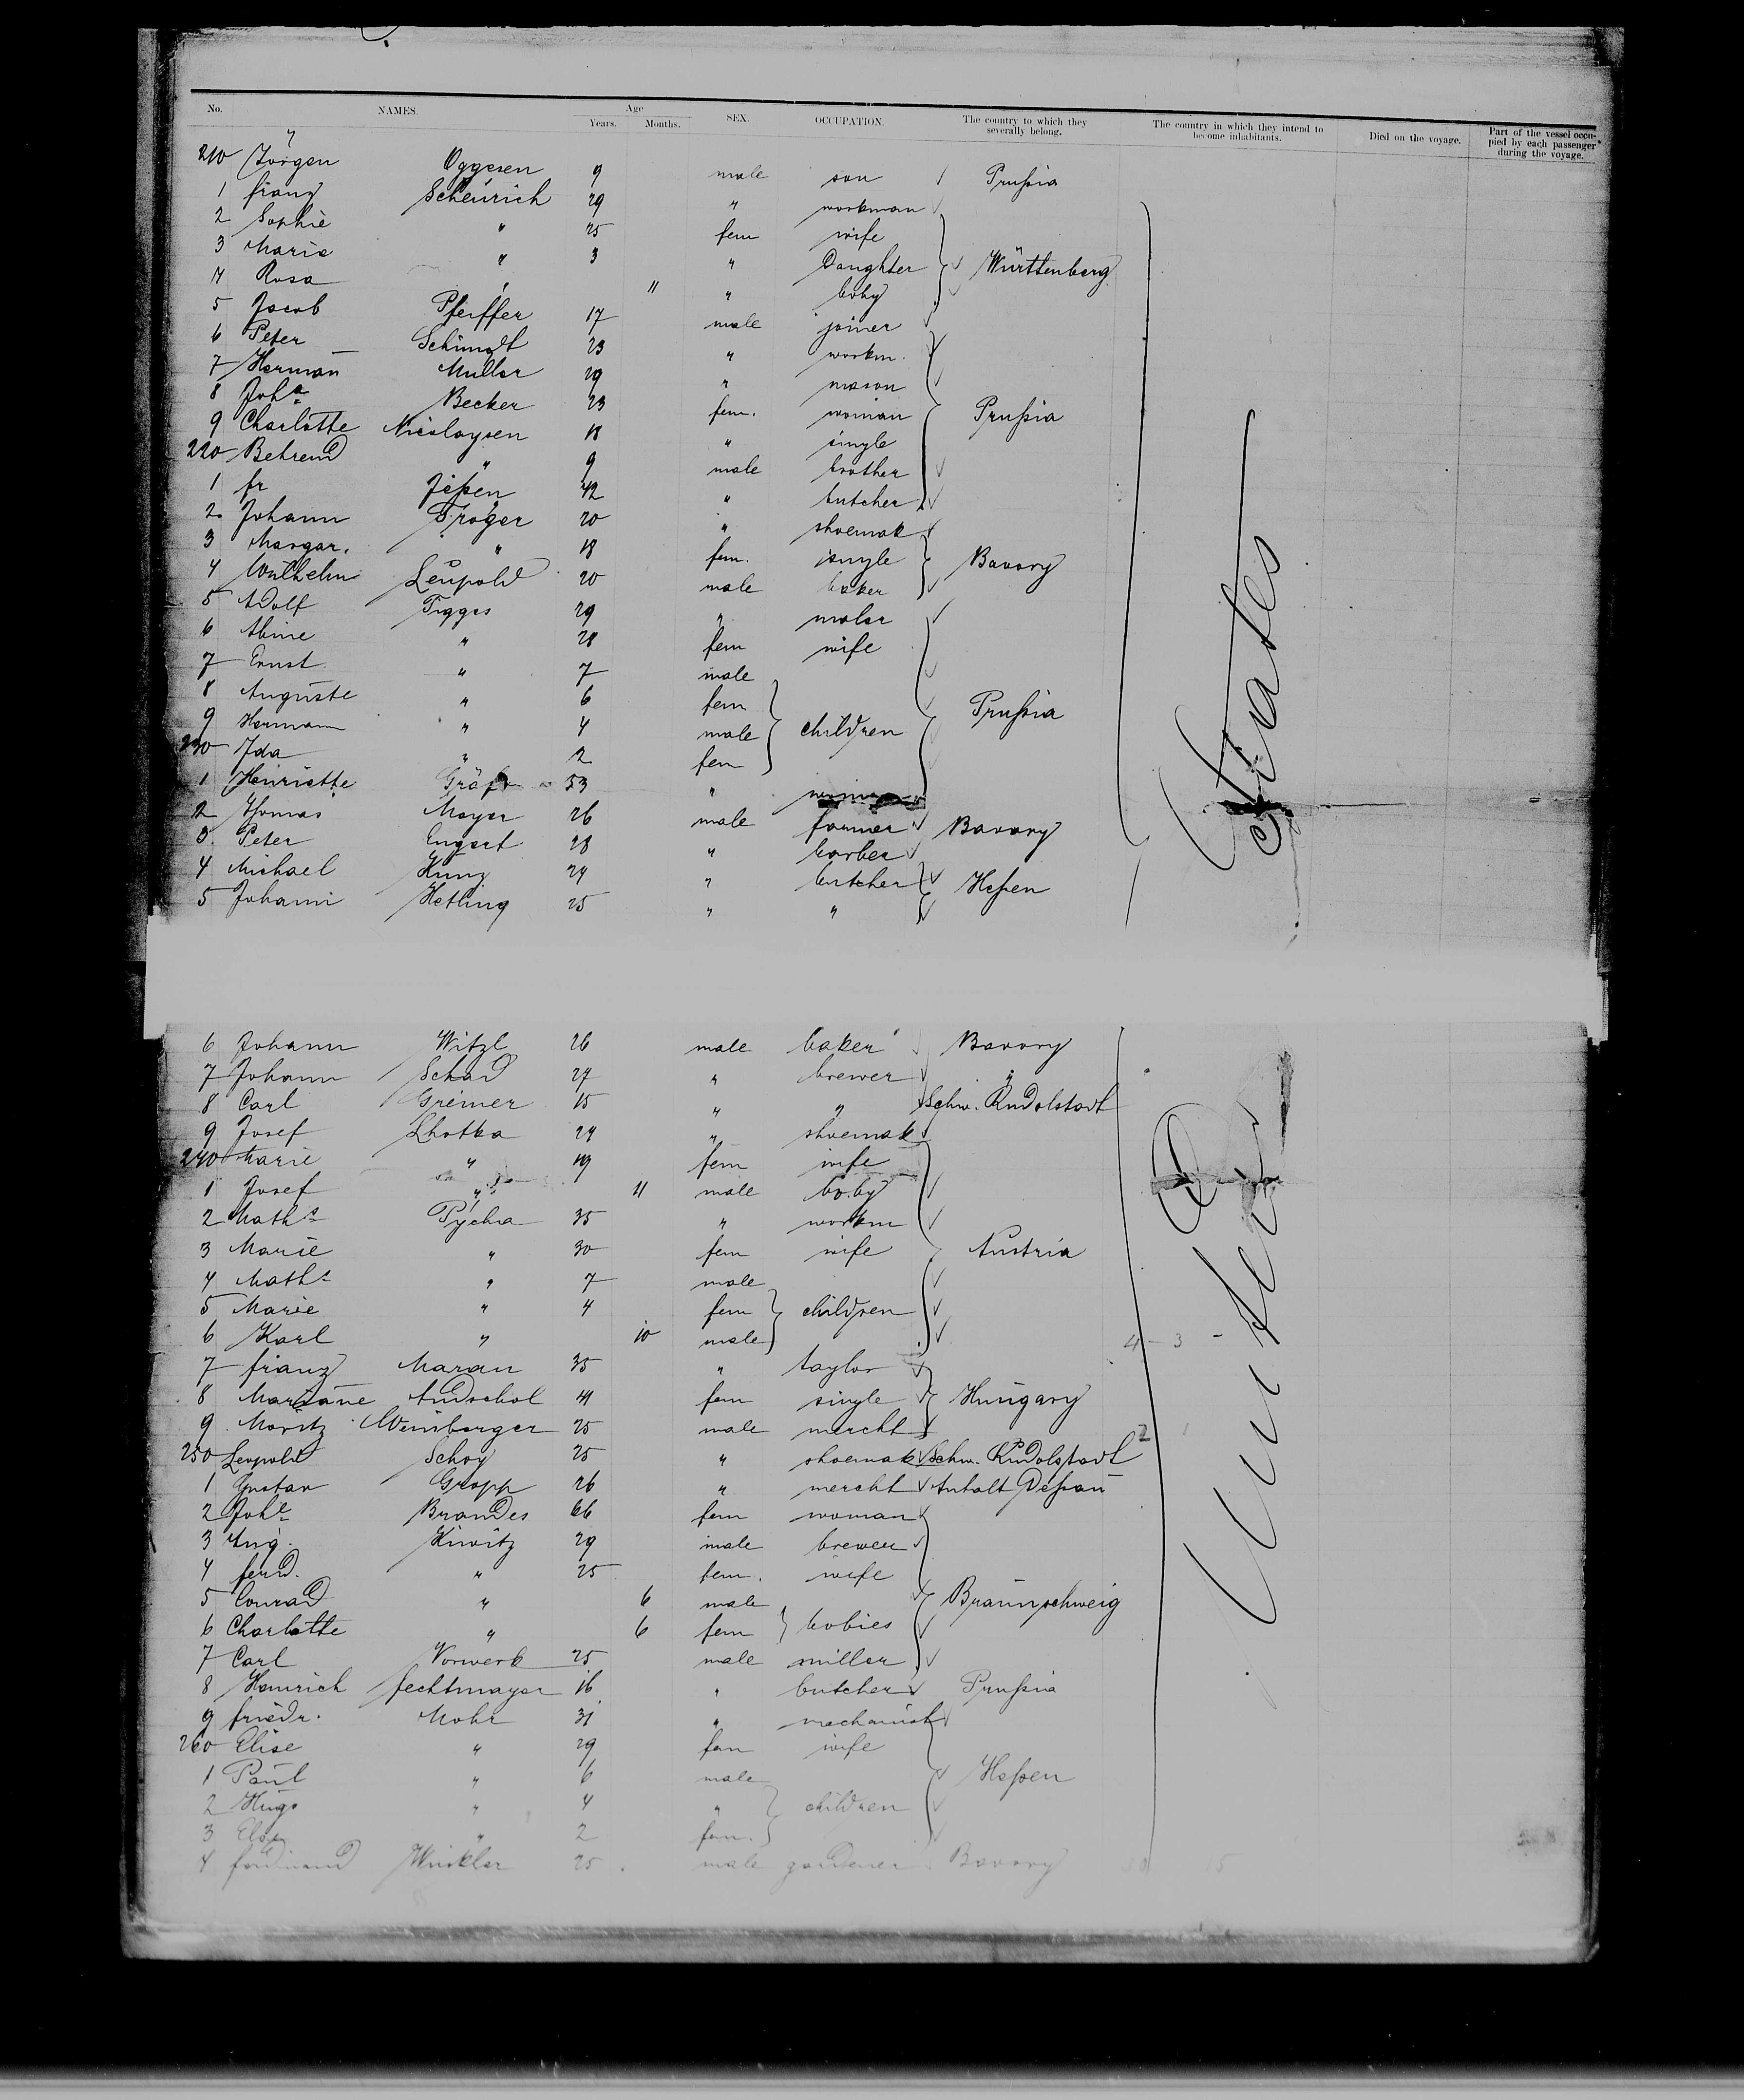 No. NAMES. Age Years. Months. SEX. OCCUPATION. The country to which they severally belong. The country in which they intend to become inhabitants. Died on the voyage. Part of the vessel occupied by each passenger during the voyage.
210 Jörgen Oggesen 9 male son Prußia
1 franz Scheurich 29 " workman
2 Sophie " 25 fem wife
3 Marie " 3 " Daughter Württenberg
4 Rosa " 11 " baby
5 Jacob Pfeiffer 17 male joiner
6 Peter Schmidt 23 " workm.
7 Herman Muller 29 " mason
8 Joha Becker 23 fem. woman Prußia
9 Charlotte Nicolaysen 18 " single
220 Behrend " 9 male brother
1 fr Jeßen 42 " butcher
2 Johann Tröger 20 " shoemak
3 Margar. " 18 fem. single Bavary
4 Wilhelm Leupold 20 male baker
5 Adolf Tigges 29 " moler
6 Alvine " 28 fem wife
7 Ernst " 7 male
8 Auguste " 6 fem Prußia
9 Hermann " 4 male children
230 Ida " 2 fem
1 Henriette 53 " woman
2 Thomas Mayer 26 male farmer Bavary
3. Peter Engert 28 " barber
4 Michael Kunz 24 " butcher Heßen
5 Johann Hetling 25 " "
6 Johann Witzl 26 male baker Bavary
7 Johann Schad 27 " brewer "
8 Carl Greiner 15 " " Schw. Rudolstadt
9 Josef Lhotka 24 " shoemak
240 Marie " 19 fem wife
1 Josef " 11 male baby
2 Maths Pycha 35 " workm
3 Marie " 30 fem wife Austria
4 Maths " 7 male
5 Marie " 4 fem children
6 Karl " 10 male 4 - 3 -
7 franz Maran 35 " taylor
8 Mariane Androhol 41 fem single Hungary
9 Moritz Weinberger 25 male mercht
250 Leopold Schoy 25 " shoemak Schw. Rudolstadt
1 Gustav Gropp 26 " mercht Anhalt Deßau
2 Johe Brandes 66 fem woman
3 Aug. Kiwitz 29 male brewer
4 ferd. " 25 fem. wife
5 Conrad " 6 male Braunschweig
6 Charlotte " 6 fem babies
7 Carl Vorwerk 25 male miller
8 Heinrich fechtmayer 16 " butcher Prußia
9 friedr. Mohr 31 " mechanist
260 Elise " 29 fem wife
1 Paul " 6 male Heßen
2 Hugo " 4 " children
3 Else " 2 fem.
4 ferdinand Winkler 25 male gardener Bavary
United States